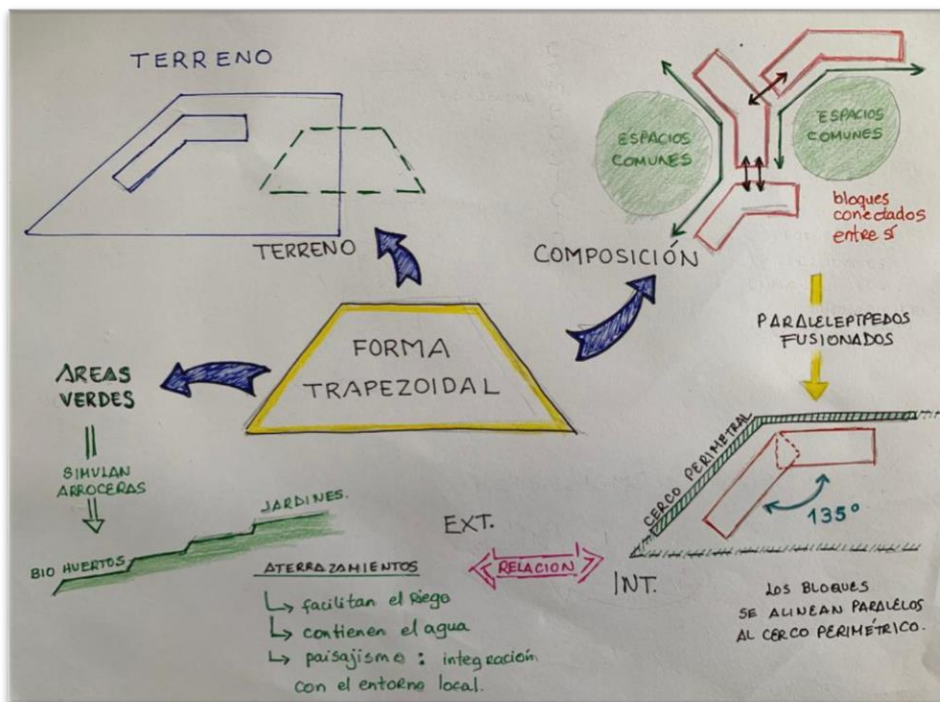 TERRENO
TERRENO
ESPACIOS
COMUNES
ESPACIOS
COMUNES
bloques
conectados
entre sí
COMPOSICIÓN
FORMA
TRAPEZOIDAL
PARALELEPÍPEDOS
FUSIONADOS
AREAS
VERDES
SIMULAN
ARROCERAS
JARDINES.
BIO HUERTOS
ATERRAZAMIENTOS
↳ facilitan el riego
↳ contienen el agua
↳ paisajismo : integración
con el entorno local.
EXT.
RELACION
INT.
CERCO PERIMETRAL
135°
LOS BLOQUES
SE ALINEAN PARALELOS
AL CERCO PERIMÉTRICO.